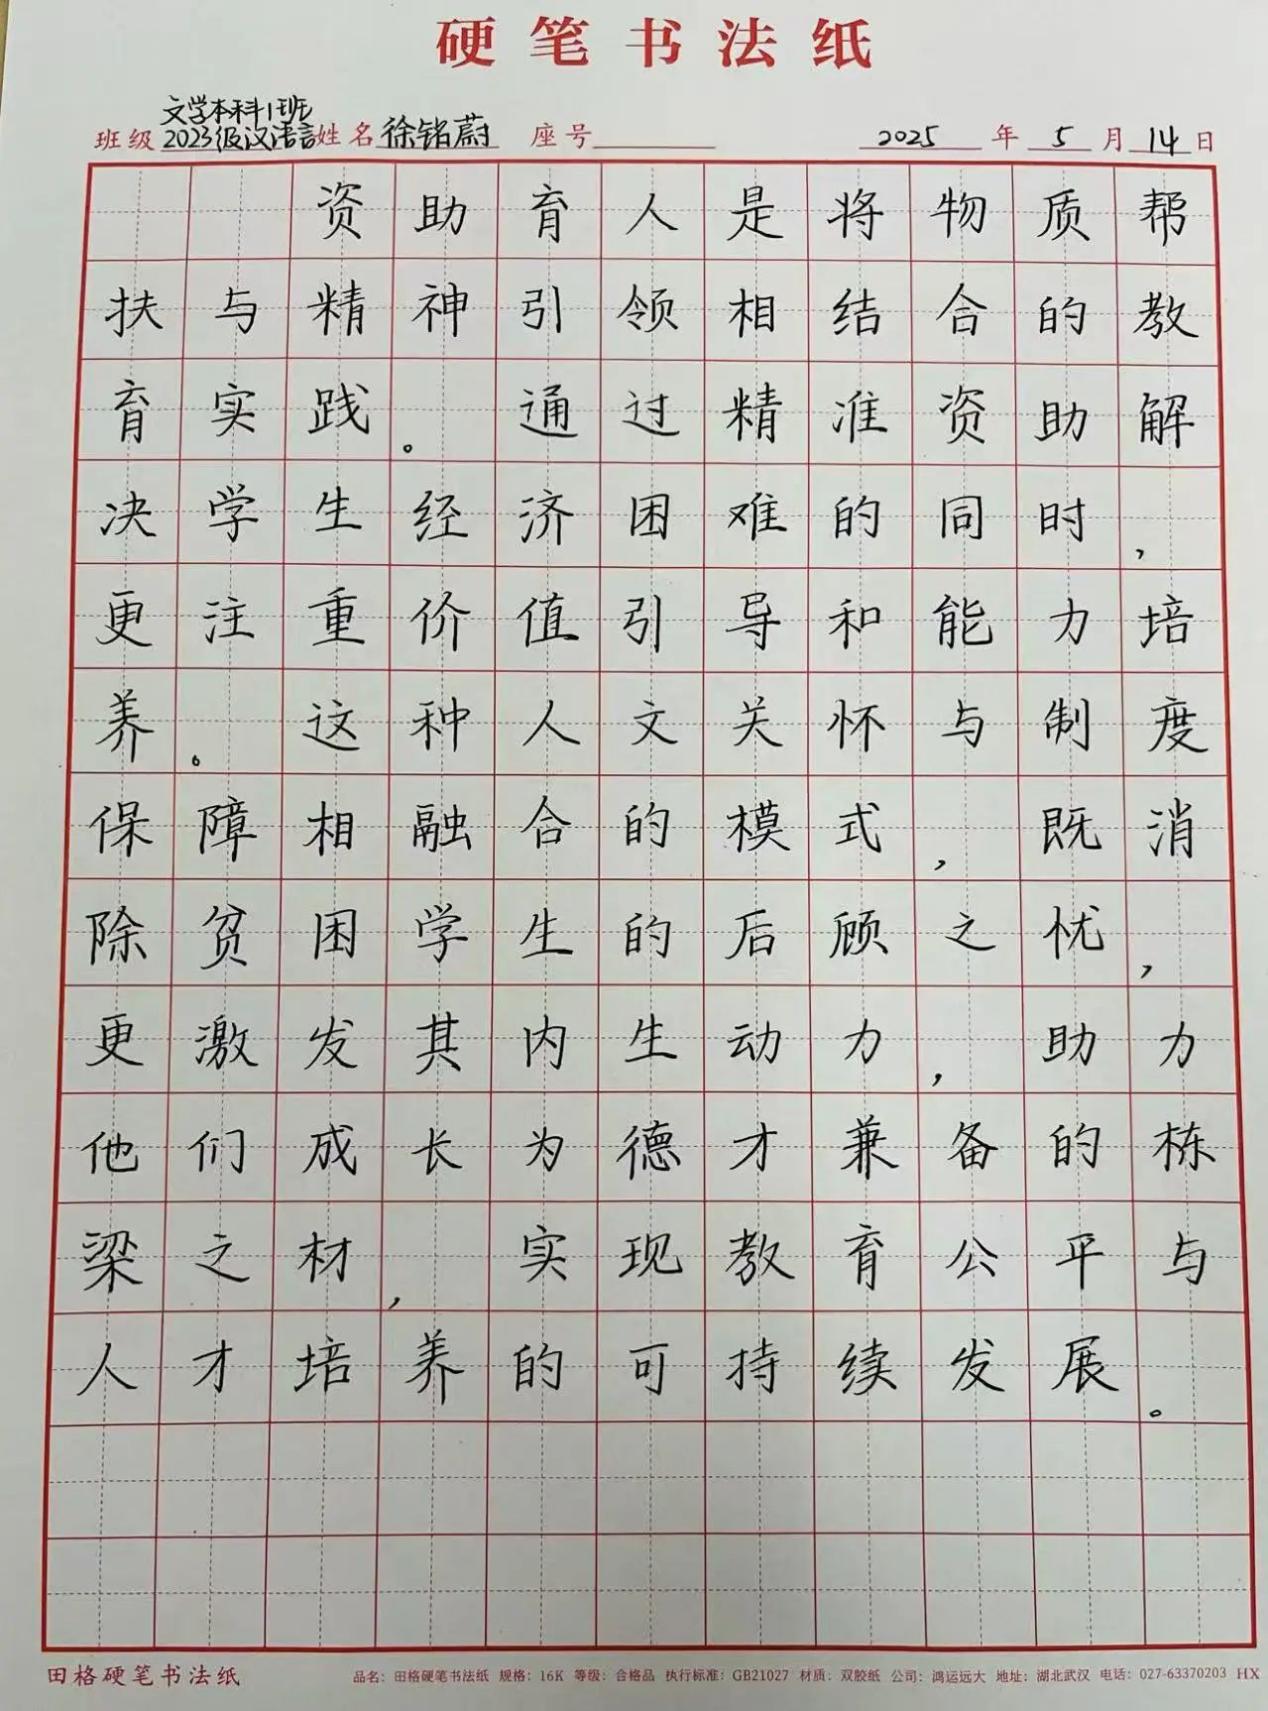 硬笔书法纸
文学本科1班
班级 2023级汉语言 姓名 徐铭蔚 座号 2025 年 5 月 14 日
资助育人是将物质帮
扶与精神引领相结合的教
育实践。通过精准资助解
决学生经济困难的同时，
更注重价值引导和能力培
养。这种人文关怀与制度
保障相融合的模式，既消
除贫困学生的后顾之忧，
更激发其内生动力，助力
他们成长为德才兼备的栋
梁之材，实现教育公平与
人才培养的可持续发展。
田格硬笔书法纸 品名：田格硬笔书法纸 规格：16K 等级：合格品 执行标准：GB21027 材质：双胶纸 公司：鸿运远大 地址：湖北武汉 电话：027-63370203 HX